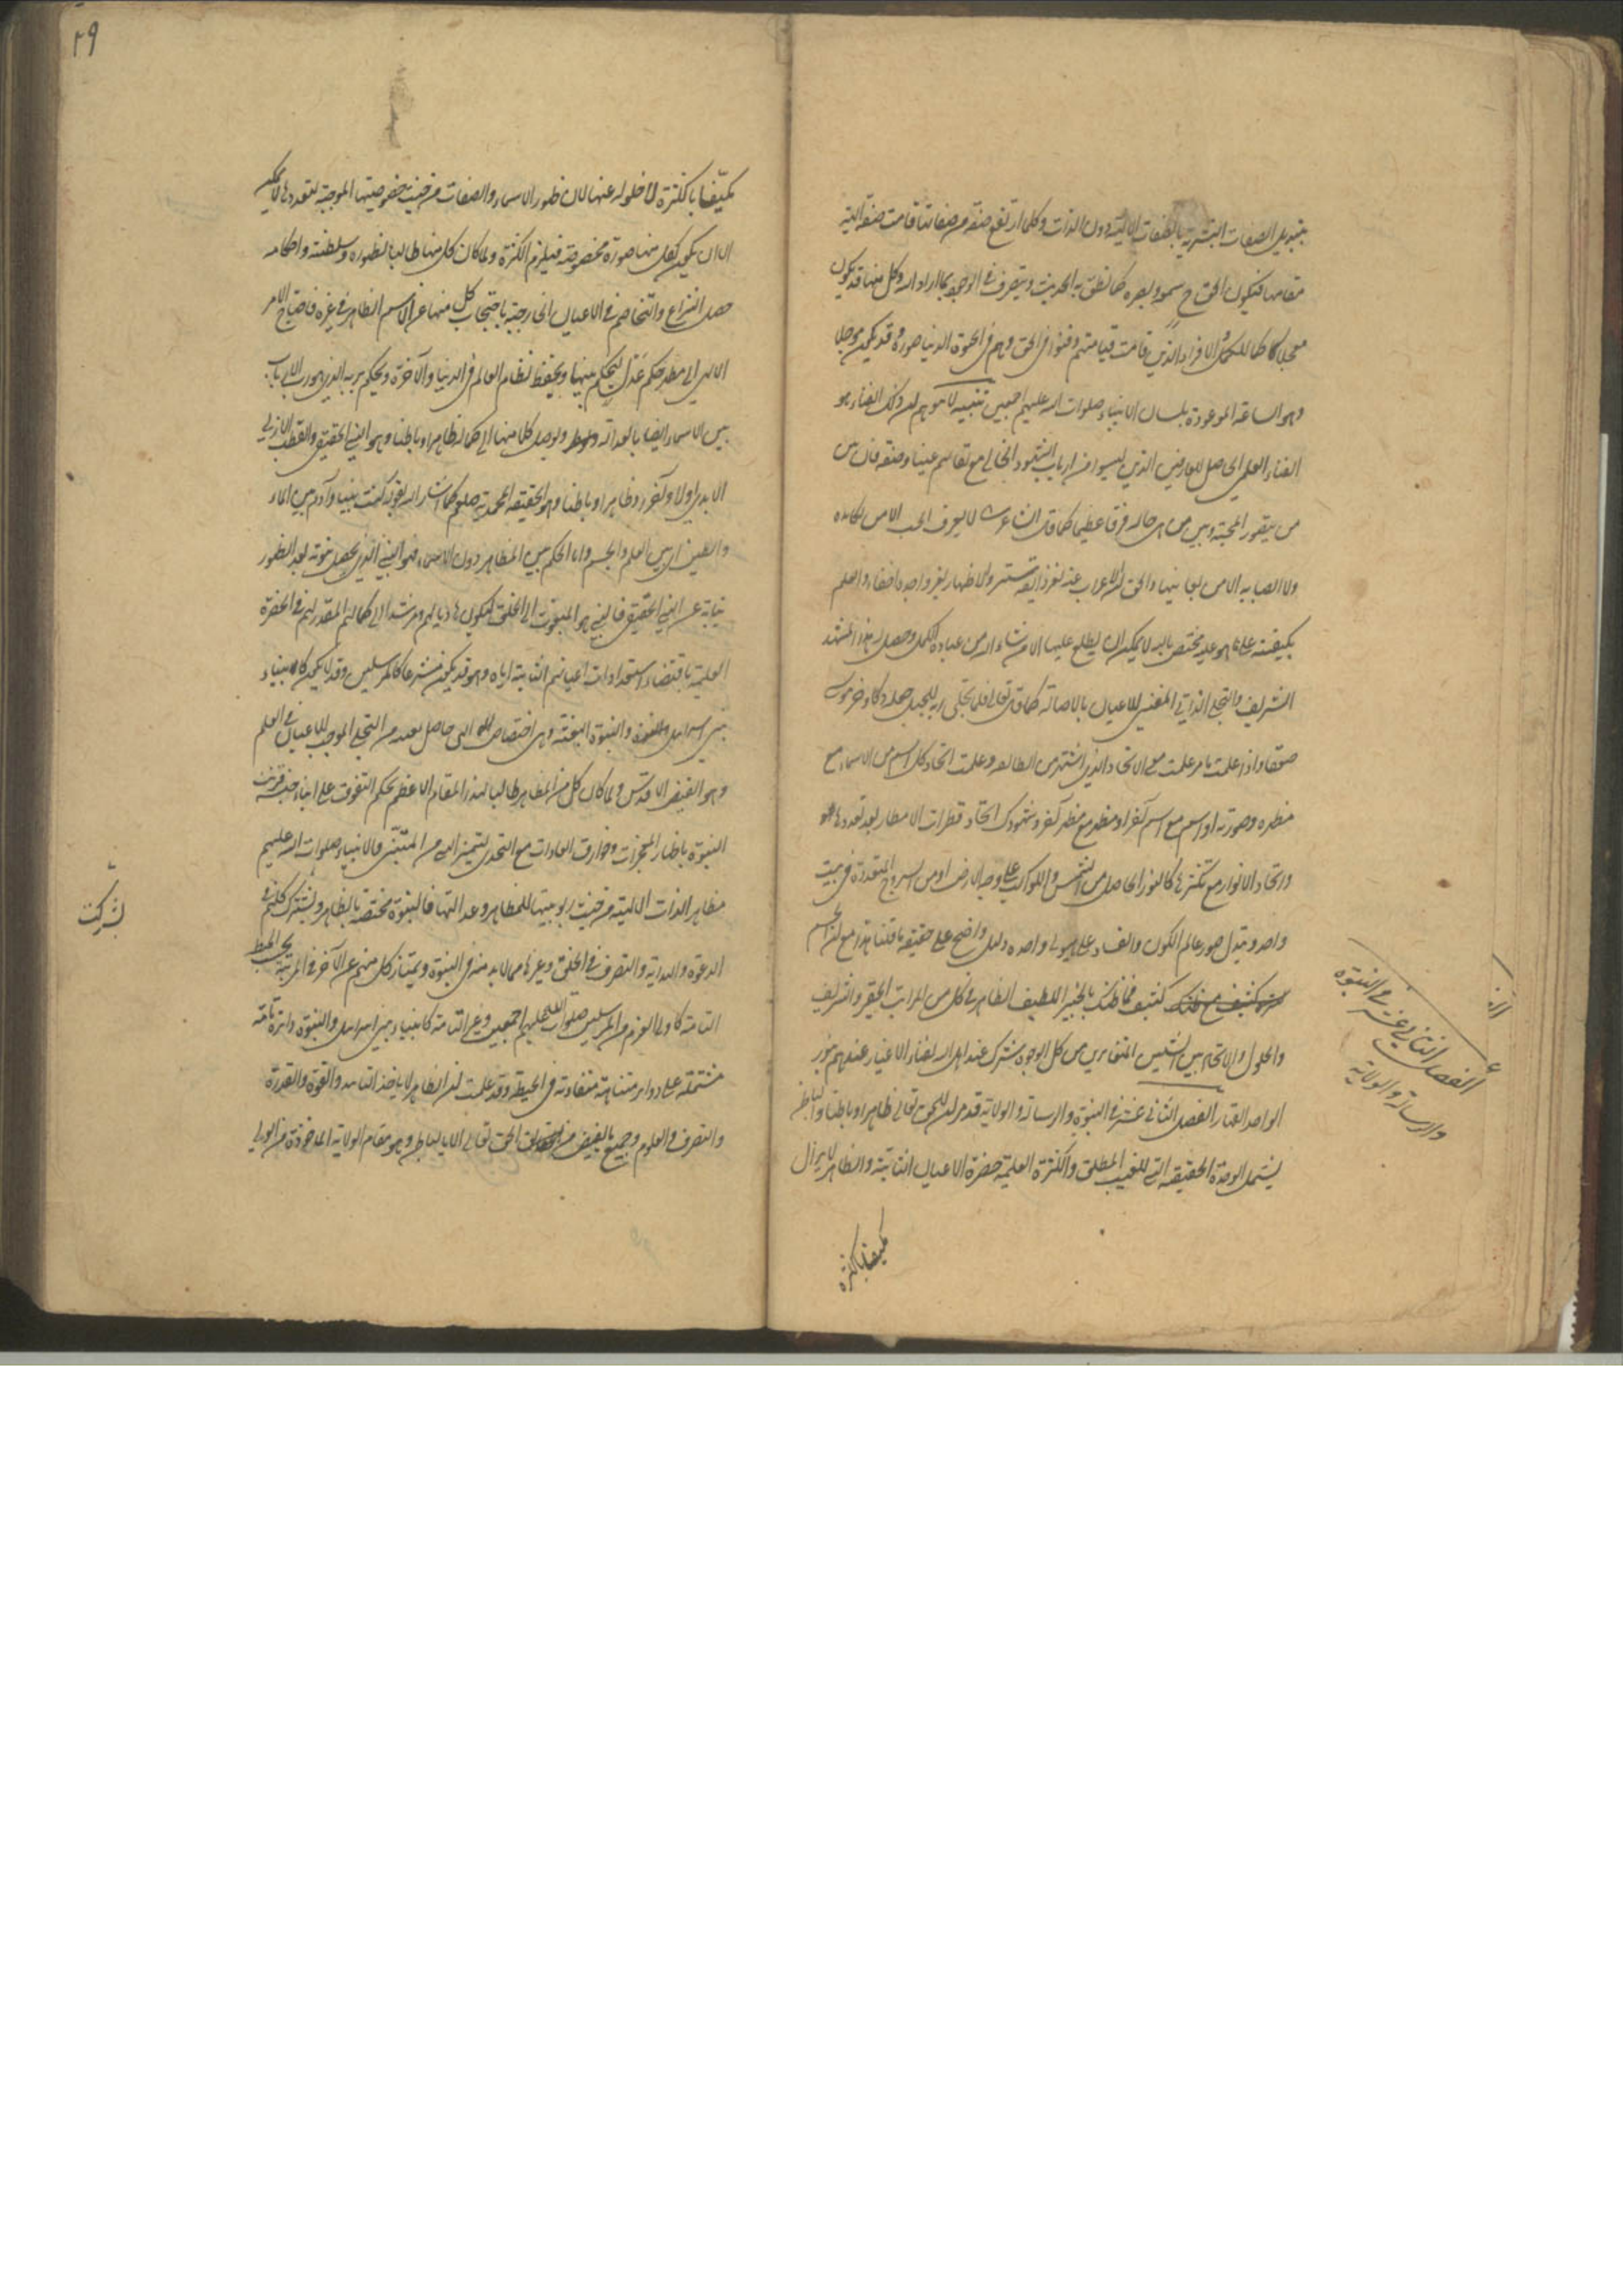 بتبديل الصفات البشرية بالصفات الالهية دون الذات وكلما ارتفع صفة من صفاتنا قامت صفة الهية
مقامها فيكون الحق ح سمعه وبصره كما نطق به الحديث ويتصرف في الوجود بما اراد الله وكل منهما قد يكون
معجلا كما للكمل والافراد الذين قامت قيامتهم وفنوا في الحق وهم في الحيوة الدنيا صورة وقد يكون مؤجلا
وهو الساعة الموعودة بلسان الانبياء صلوات الله عليهم اجمعين تنبيه لا تتوهم ان ذلك الفناء هو
الفناء العلمي الحاصل للعارفين الذين ليسوا من ارباب الشهود الحالي مع بقائهم عينا وصفة فان بين
من يتصور المحبة وبين من هي حاله فرقا عظيما كما قال الشاعر لا يعرف الحب الا من يكابده
ولا الصبابة الا من يعانيها والحق ان الاعراب عنه لغير ذائقه ستر والاظهار لغير واجده اخفاء والعلم
بكيفيته على ما هو عليه مختص بالله لا يمكن ان يطلع عليها الا من شاء الله من عباده الكمل وحصل له هذا المشهد
الشريف والتجلي الذاتي المفني للاعيان بالاصالة كما قال تعالى فلما تجلى ربه للجبل جعله دكا وخر موسى
صعقا واذا علمت ما مر علمت معنى الاتحاد الذي اشتهر بين الطائفة وعلمت اتحاد كل اسم من الاسماء مع
مظهره وصورته او اسم مع اسم آخر او مظهر مع مظهر آخر وشهودك اتحاد قطرات الامطار بعد تعددها
واتحاد الانوار مع تكثرها كالنور الحاصل من الشمس والكواكب على وجه الارض او من السرج المتعددة في بيت
واحد وتبدل صور عالم الكون والفساد على هيولى واحدة دليل واضح على حقيقة ما قلنا هذا مع ان الجسم
كثيف فما ظنك بالخبير اللطيف الظاهر في كل من المراتب الحقير والشريف
والحلول والاتحاد بين الشيئين المتغايرين من كل الوجوه شرك عند اهل الله لفناء الاغيار عندهم بنور
الواحد القهار الفصل الثاني عشر في النبوة والرسالة والولاية قد مر ان للحق تعالى ظاهرا وباطنا والباطن
يشمل الوحدة الحقيقية التي للغيب المطلق والكثرة العلمية حضرة الاعيان الثابتة والظاهر لا يزال
مكتنفا بالكثرة
الفصل الثاني عشر في النبوة
والرسالة والولاية
٢٩
مكتنفا بالكثرة لا خلو له عنها لان ظهور الاسماء والصفات من حيث خصوصيتها الموجبة لتعددها لا يمكن
الا ان يكون لكل منها صورة مخصوصة فيلزم الكثرة ولما كان كل منها طالبا لظهوره وسلطنته واحكامه
حصل النزاع والتخاصم في الاعيان الخارجية باحتجاب كل منها عن الاسم الظاهر في غيره فاحتاج الامر
الالهي الى مظهر حكم عدل ليحكم بينها ويحفظ نظام العالم في الدنيا والآخرة ويحكم بربه الذي هو رب الارباب
بين الاسماء ايضا بالعدالة ويوصل كلا منها الى كماله ظاهرا وباطنا وهو النبي الحقيقي والقطب الازلي
الابدي اولا وآخرا وظاهرا وباطنا وهو الحقيقة المحمدية صلعم كما اشار اليه بقوله كنت نبيا وآدم بين الماء
والطين اي بين العلم والجسم واما الحكم بين المظاهر دون الاسماء فهو النبي الذي يحصل نبوته بعد الظهور
نيابة عن النبي الحقيقي فالنبي هو المبعوث الى الخلق ليكون هاديا لهم ومرشدا الى كمالهم المقدر لهم في الحضرة
العلمية باقتضاء استعدادات اعيانهم الثابتة اياه وهو قد يكون مشرعا كالمرسلين وقد لا يكون كانبياء
بني اسرائيل والنبوة البعثة وهي اختصاص الهي حاصل لعبده من التجلي الموجب للاعيان في العلم
وهو الفيض الاقدس ولما كان كل من المظاهر طالبا لهذا المقام الاعظم بحكم التفوق على ابناء جنسه قرنت
النبوة باظهار المعجزات وخوارق العادات مع التحدي ليتميز النبي من المتنبي والانبياء صلوات الله عليهم
مظاهر الذات الالهية من حيث ربوبيتها للمظاهر وعدالتها فالنبوة مختصة بالظاهر ويشترك كلهم في
الدعوة والهداية والتصرف في الخلق وغيرها مما لا بد منه في النبوة ويمتاز كل منهم عن الآخر في المرتبة بحسب الحيطة
التامة كاولي العزم من المرسلين صلوات الله عليهم اجمعين وغير التامة كانبياء بني اسرائيل والنبوة دائرة تامة
مشتملة على دوائر متناهية متفاوتة في الحيطة وقد علمت ان الظاهر لا ياخذ التاييد والقوة والقدرة
والتصرف والعلوم وجميع ما يفيض من الحق تعالى الا بالباطن وهو مقام الولاية الماخوذة من الولي